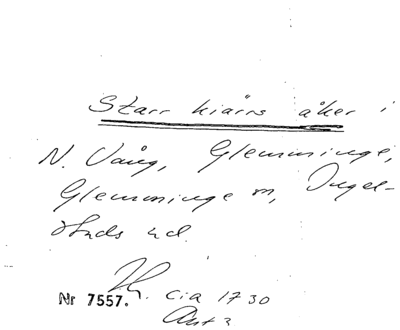 Starr kiärrs åker i
N. Vång, Glemminge,
Glemminge sn, Ingel-
stads hd.
Nr 7557. cia 1730